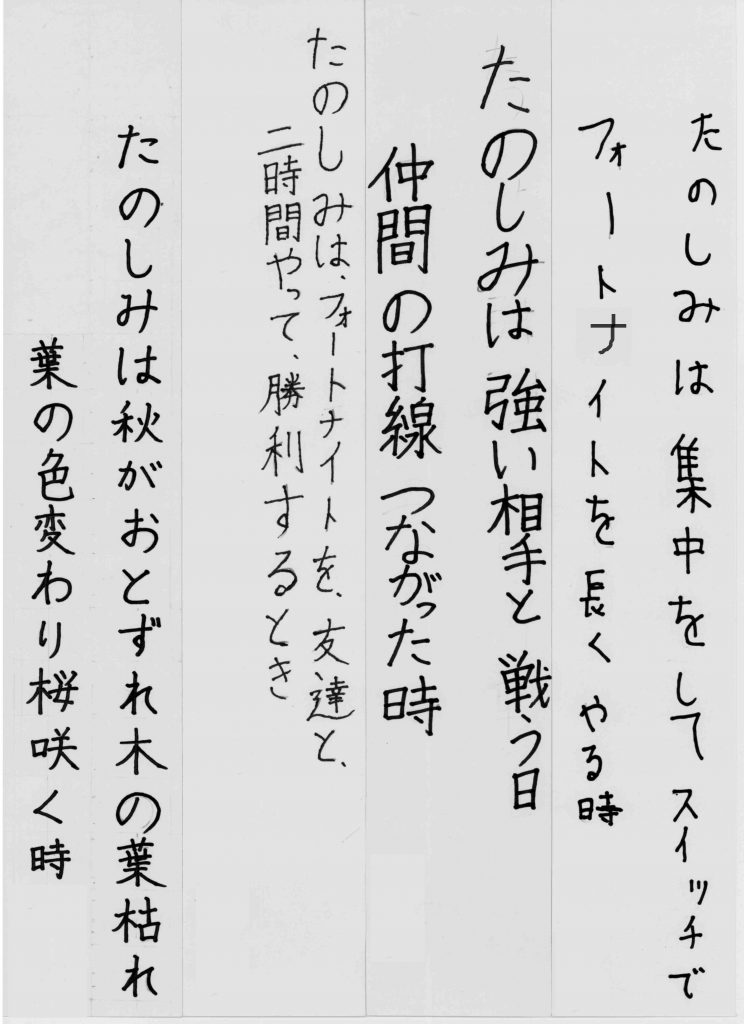 たのしみは集中をしてスイッチで
フォートナイトを長くやる時
たのしみは強い相手と戦う日
仲間の打線つながった時
たのしみは、フォートナイトを、友達と、
二時間やって、勝利するとき
たのしみは秋がおとずれ木の葉枯れ
葉の色変わり桜咲く時